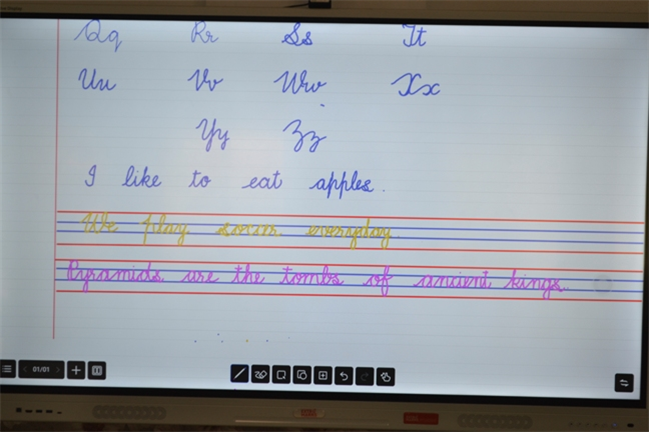 Qq Rr Ss Tt
Uu Vv Ww Xx
Yy Zz
I like to eat apples.
We play everyday
Pyramids are the tombs of ancient kings.
01/01